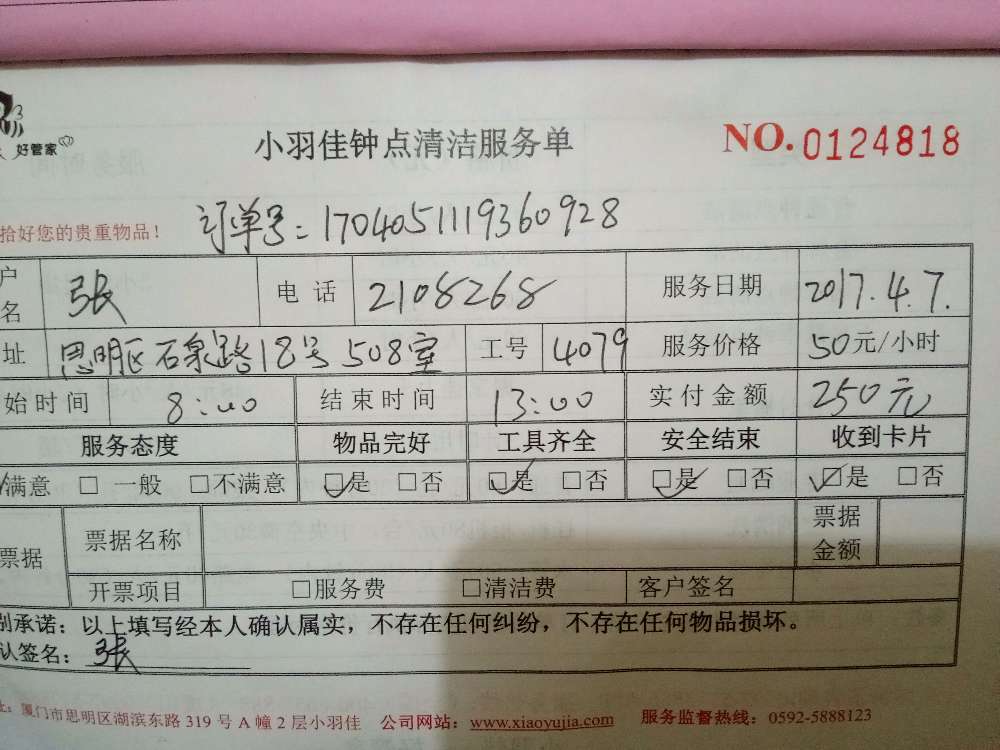 好管家
小羽佳钟点清洁服务单
NO.0124818
拾好您的贵重物品!
订单号:1704051119360928
户名 张 电话 2108268 服务日期 2017.4.7.
址 思明区石泉路18号508室 工号 4079 服务价格 50元/小时
始时间 8:00 结束时间 13:00 实付金额 250元
服务态度 物品完好 工具齐全 安全结束 收到卡片
满意 □ 一般 □不满意 □是 □否 □是 □否 □是 □否 □是 □否
票据 票据名称 票据金额
开票项目 □服务费 □清洁费 客户签名
别承诺:以上填写经本人确认属实,不存在任何纠纷,不存在任何物品损坏。
认签名:张
址:厦门市思明区湖滨东路 319 号 A 幢 2 层小羽佳 公司网站:www.xiaoyujia.com 服务监督热线:0592-5888123